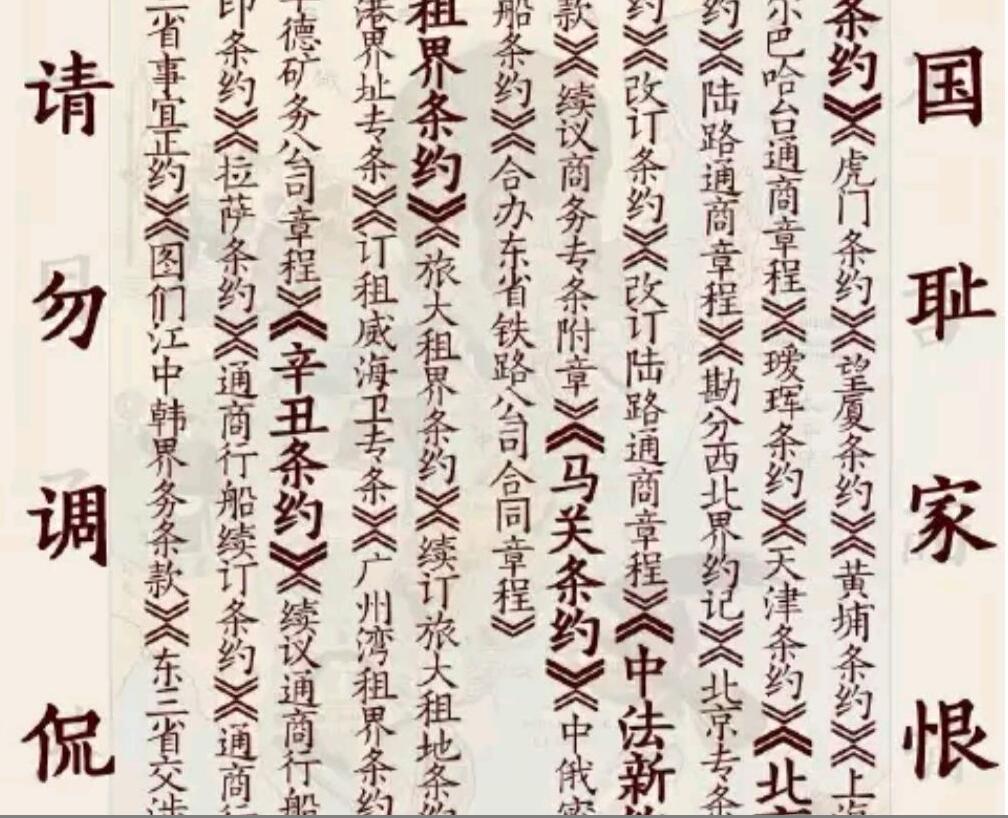 国耻家恨
条约》《虎门条约》《望厦条约》《黄埔条约》《上海
尔巴哈台通商章程》《瑷珲条约》《天津条约》《北
约》《陆路通商章程》《勘分西北界约记》《北京专条
约》《改订条约》《改订陆路通商章程》《中法新
款》《续议商务专条附章》《马关条约》《中俄密
船条约》《合办东省铁路公司合同章程》
租界条约》《旅大租界条约》《续订旅大租地条
港界址专条》《订租威海卫专条》《广州湾租界条约
德矿务公司章程》《辛丑条约》《续议通商行船
印条约》《拉萨条约》《通商行船续订条约》《通商行
三省事宜正约》《图们江中韩界务条款》《东三省交涉
请勿调侃